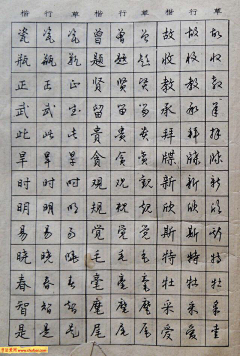 楷 行 草 楷 行 草 楷 行 草
瓷 瓷 瓷 曾 曾 曾 故 故 故
瓶 瓶 瓶 题 题 题 收 收 收
正 正 正 贤 贤 贤 教 教 教
武 武 武 留 留 留 承 承 承
此 此 此 贵 贵 贵 拜 拜 拜
早 早 早 贪 贪 贪 牒 牒 牒
时 时 时 观 观 观 新 新 新
明 明 明 规 规 规 欣 欣 欣
易 易 易 觉 觉 觉 斯 斯 斯
晓 晓 晓 毛 毛 毛 特 特 特
春 春 春 毫 毫 毫 牡 牡 牡
智 智 智 麾 麾 麾 采 采 采
是 是 是 尾 尾 尾 爱 爱 爱